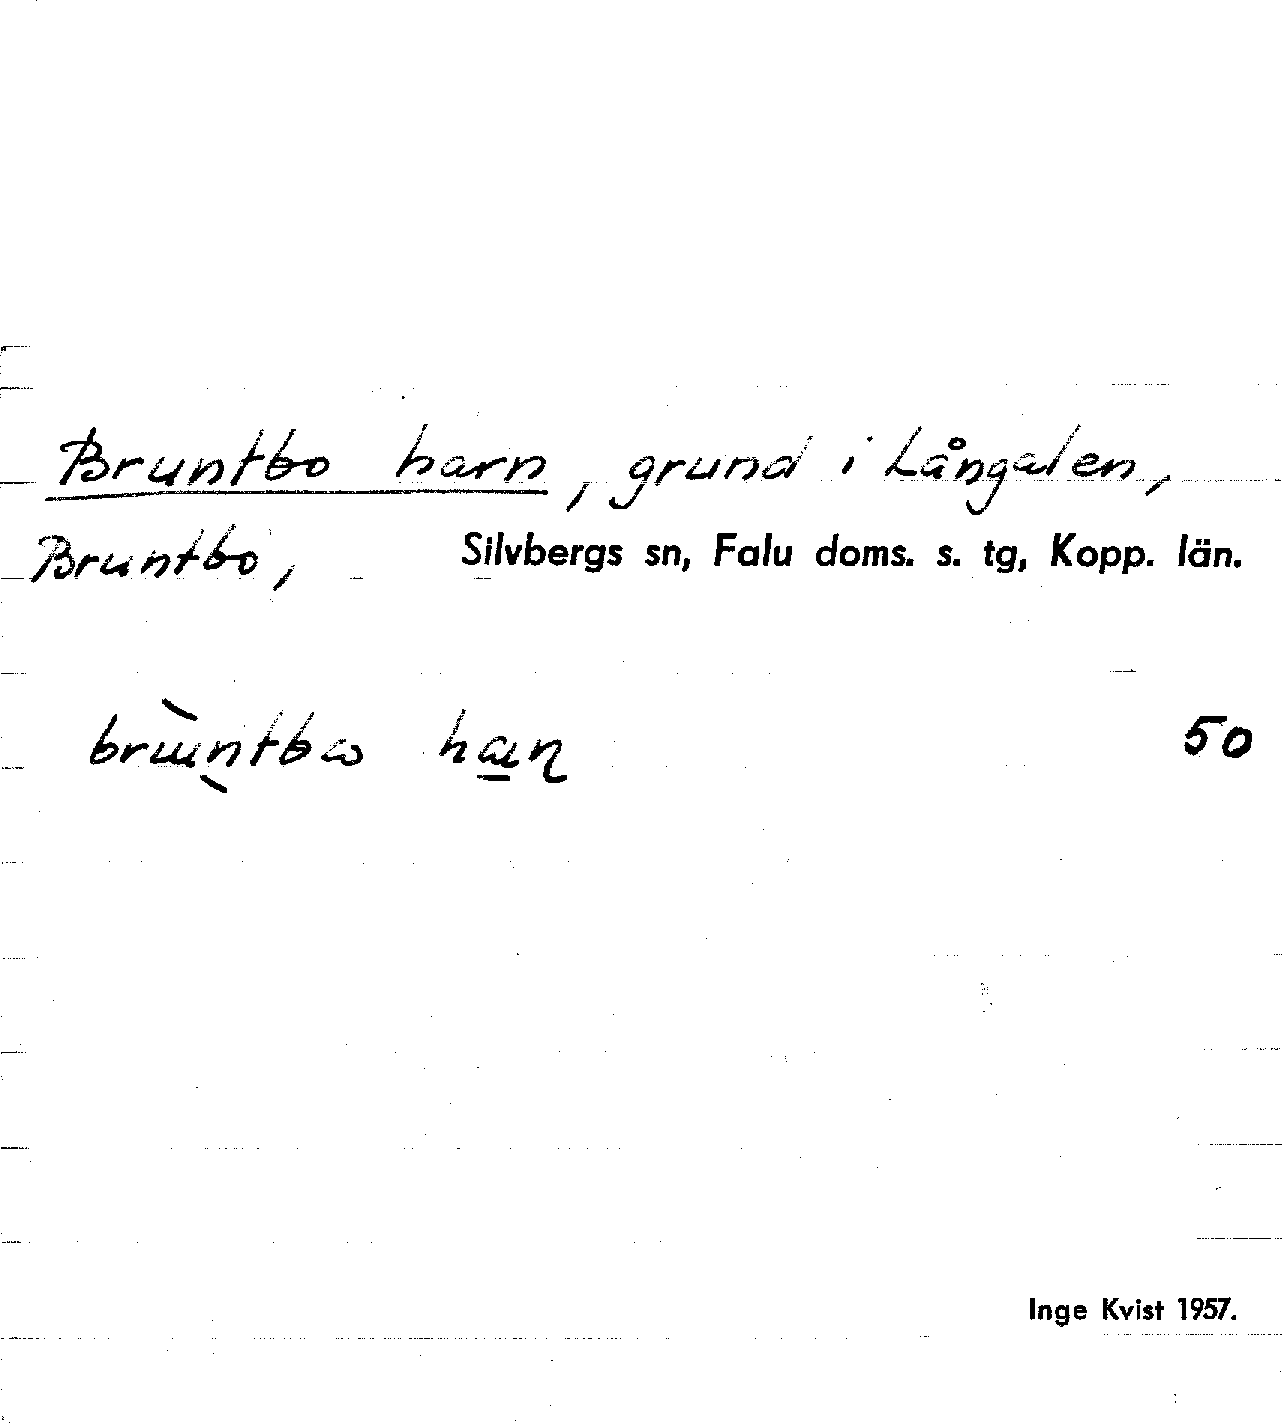 Bruntbo harn, grund i Långalen,
Bruntbo, Silvbergs sn, Falu doms. s. tg, Kopp. län.
50
Inge Kvist 1957.